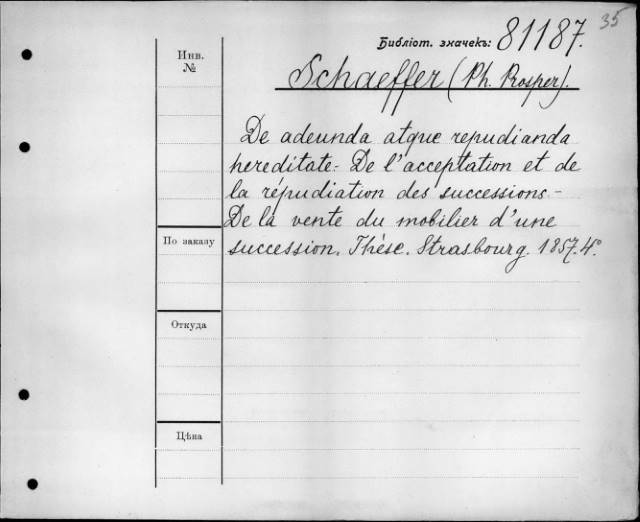 35
Библіот. значекъ: 81187.
Инв.
№
Schaeffer (Ph. Prosper).
De adeunda atque repudianda
hereditate. De l'acceptation et de
la répudiation des successions -
De la vente du mobilier d'une
succession. Thése. Strasbourg. 1857. 4°
По заказу
Откуда
Цѣна